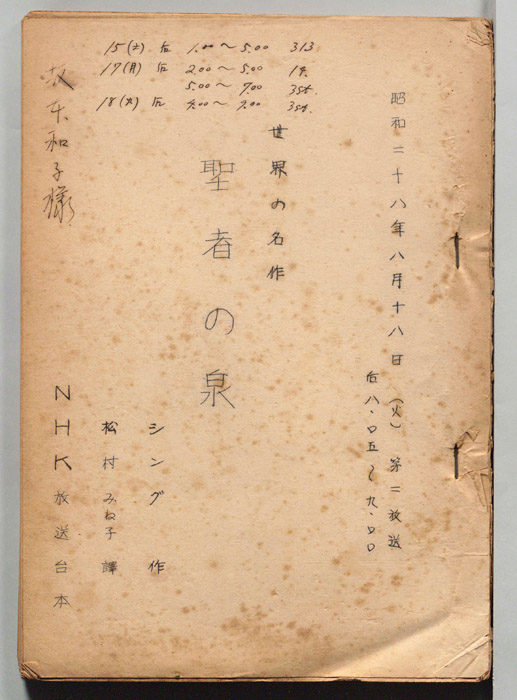 15(土) 后 1.00〜5.00 313
17(月) 后 2.00〜5.00
5.00〜7.00 3st.
18(火) 后 4.00〜9.00 3st.
昭和二十八年八月十八日(火)第二放送
后八・〇五〜九・〇〇
世界の名作
聖者の泉
シング 作
松村みね子 譯
NHK放送台本
本和子様